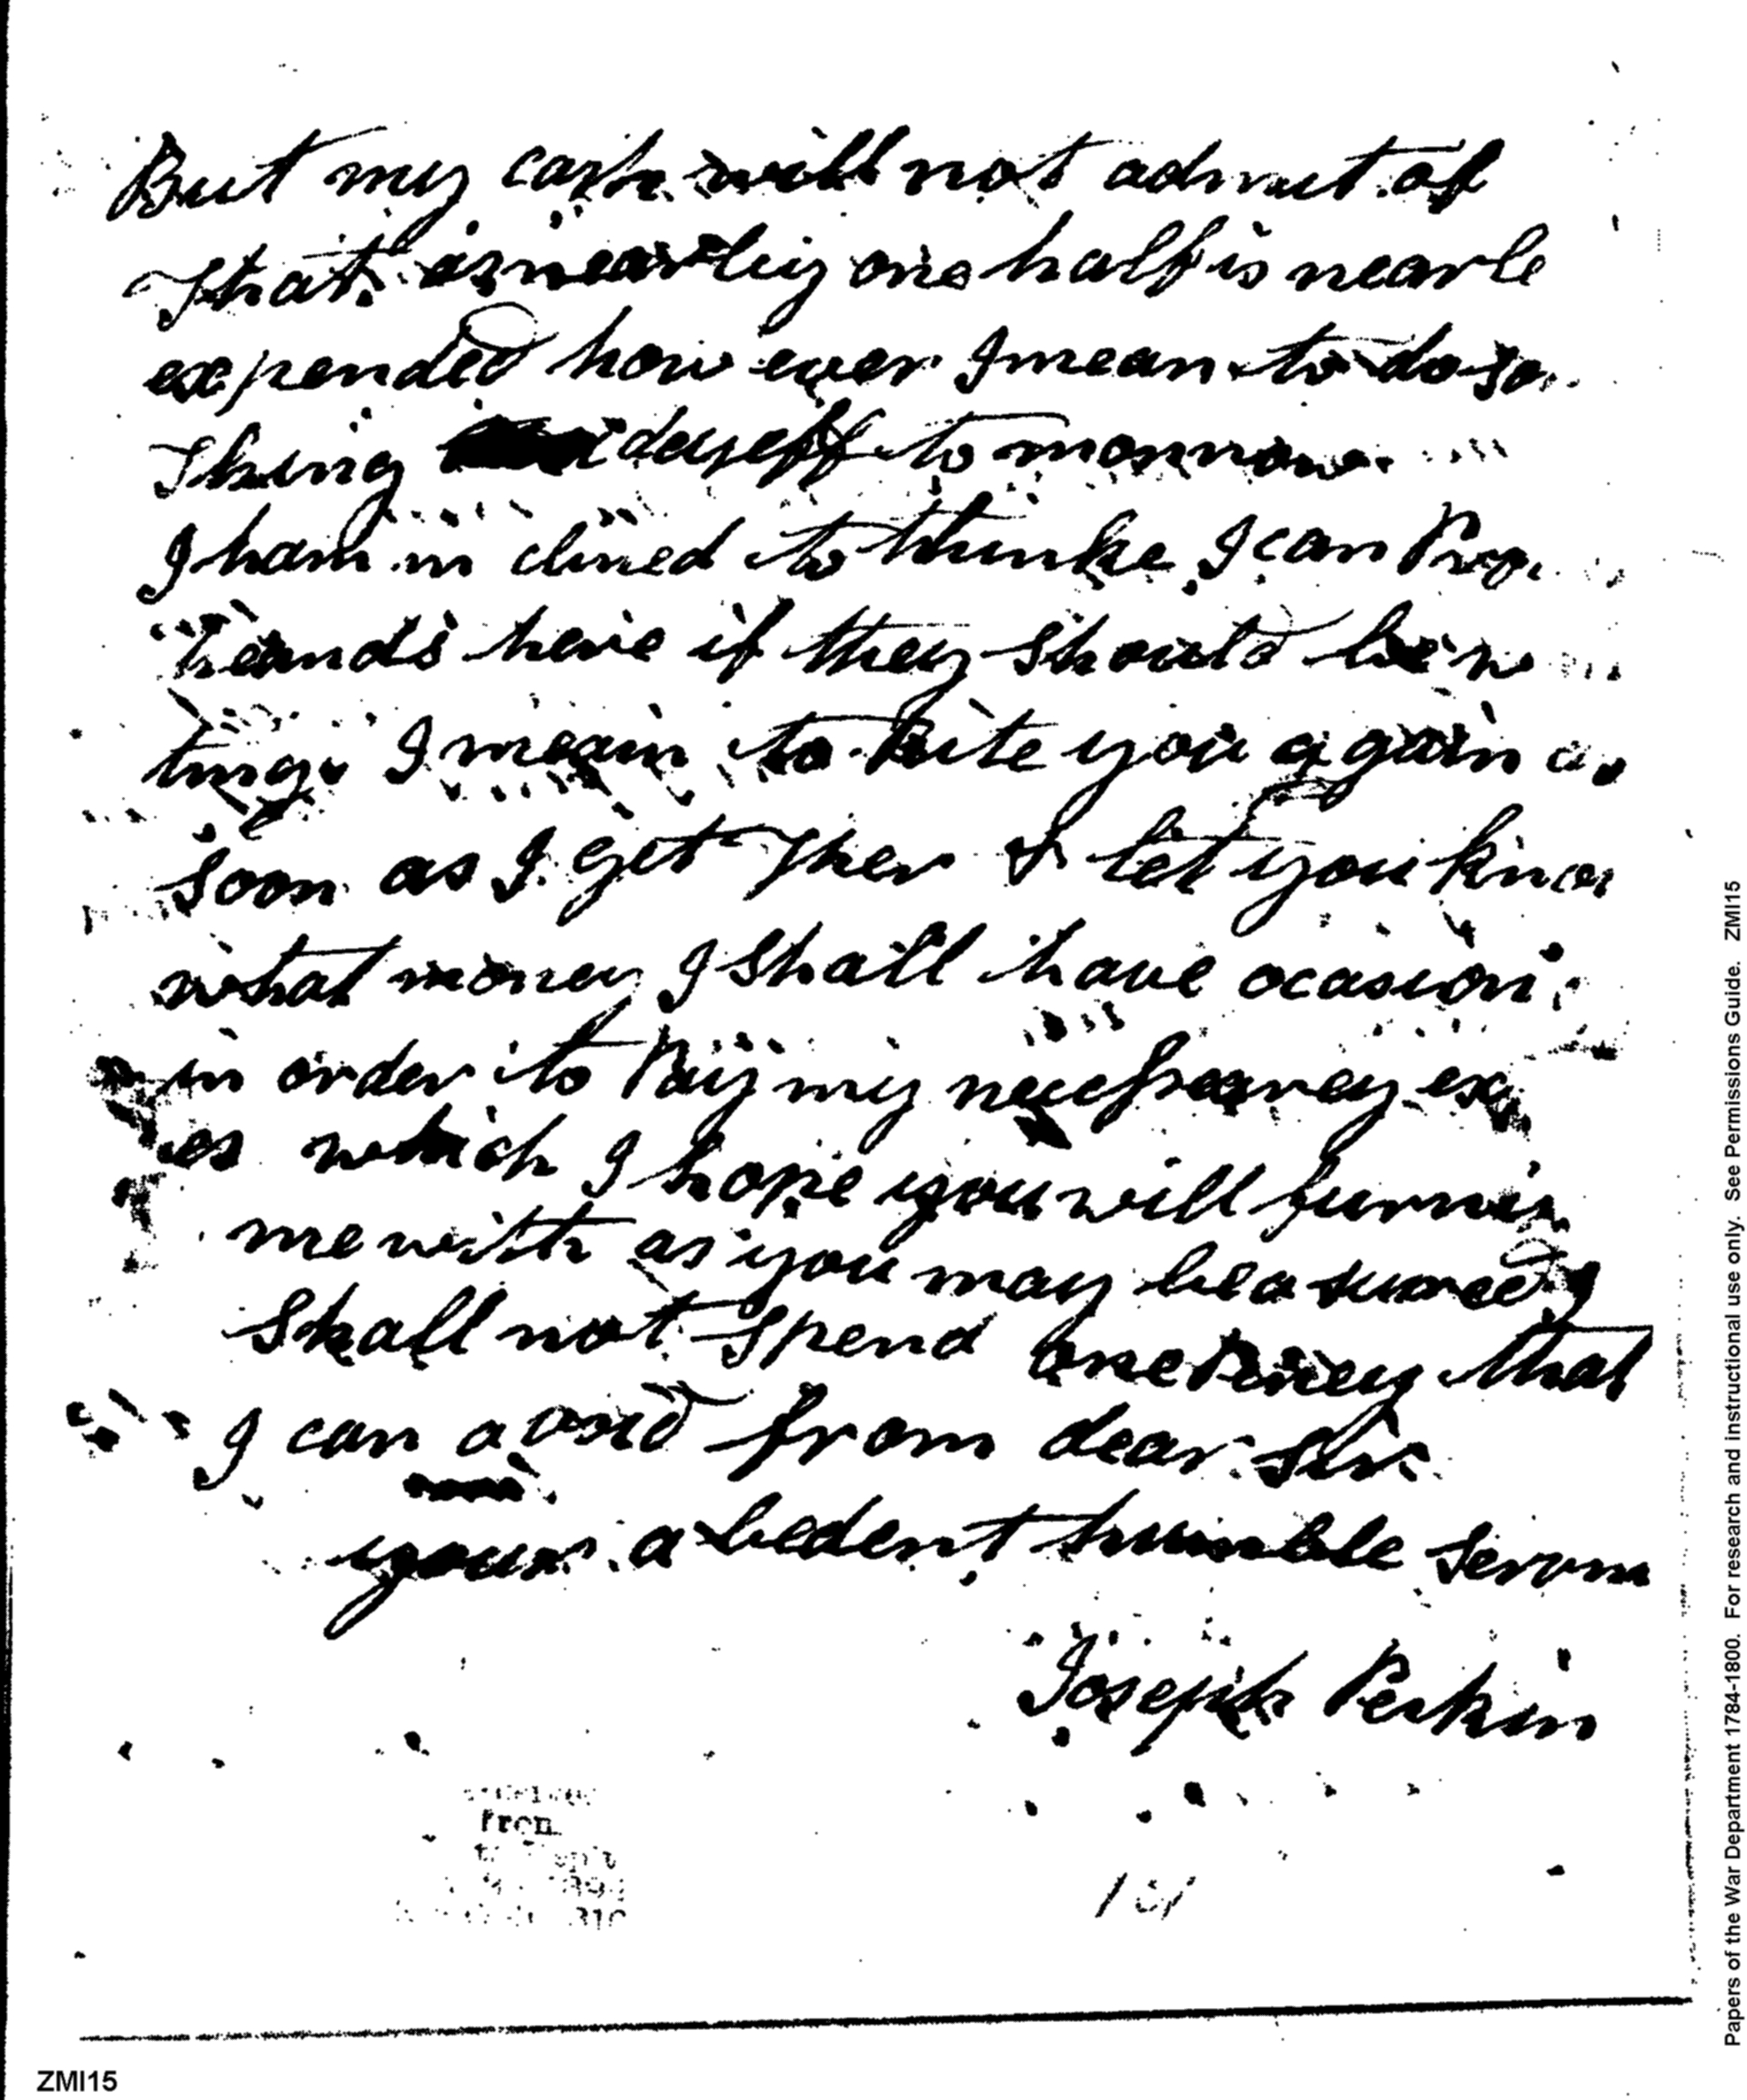 But my cash will not admit of
That as nearley one half is nearle
expended how ever I mean to do so
Thing deuseff to morrow
I ham in clined to thinke I can Pro
heands heire if they should be w
ting I mean to Rite you again as
soon as I get Ther & let you know
what money I shall have ocasion
in order to Pay my necessarey ex
es which I hope you will furnis
me with as you may be asured I
Shall not spend one Peney that
I can avoid from dear Sir
your abedent humble servan
Joseph Perkin
from
310
ZMI15
Papers of the War Department 1784-1800. For research and instructional use only. See Permissions Guide. ZMI15